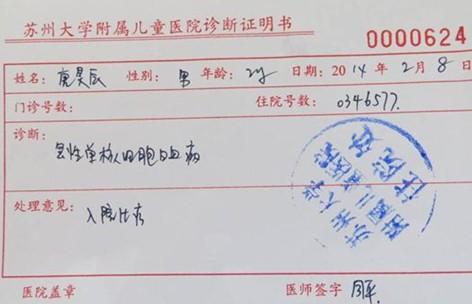 苏州大学附属儿童医院诊断证明书
0000624
姓名: 庾昊辰 性别: 男 年龄: 2y 日期: 2014年2月8日
门诊号数: 住院号数: 0346577.
诊断:
急性单核细胞白血病
处理意见:
入院治疗
苏州大学
附属儿童医院
住院处
医院盖章 医师签字